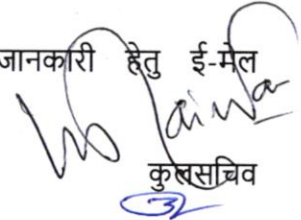 जानकारी हेतु ई-मेल
कुलसचिव